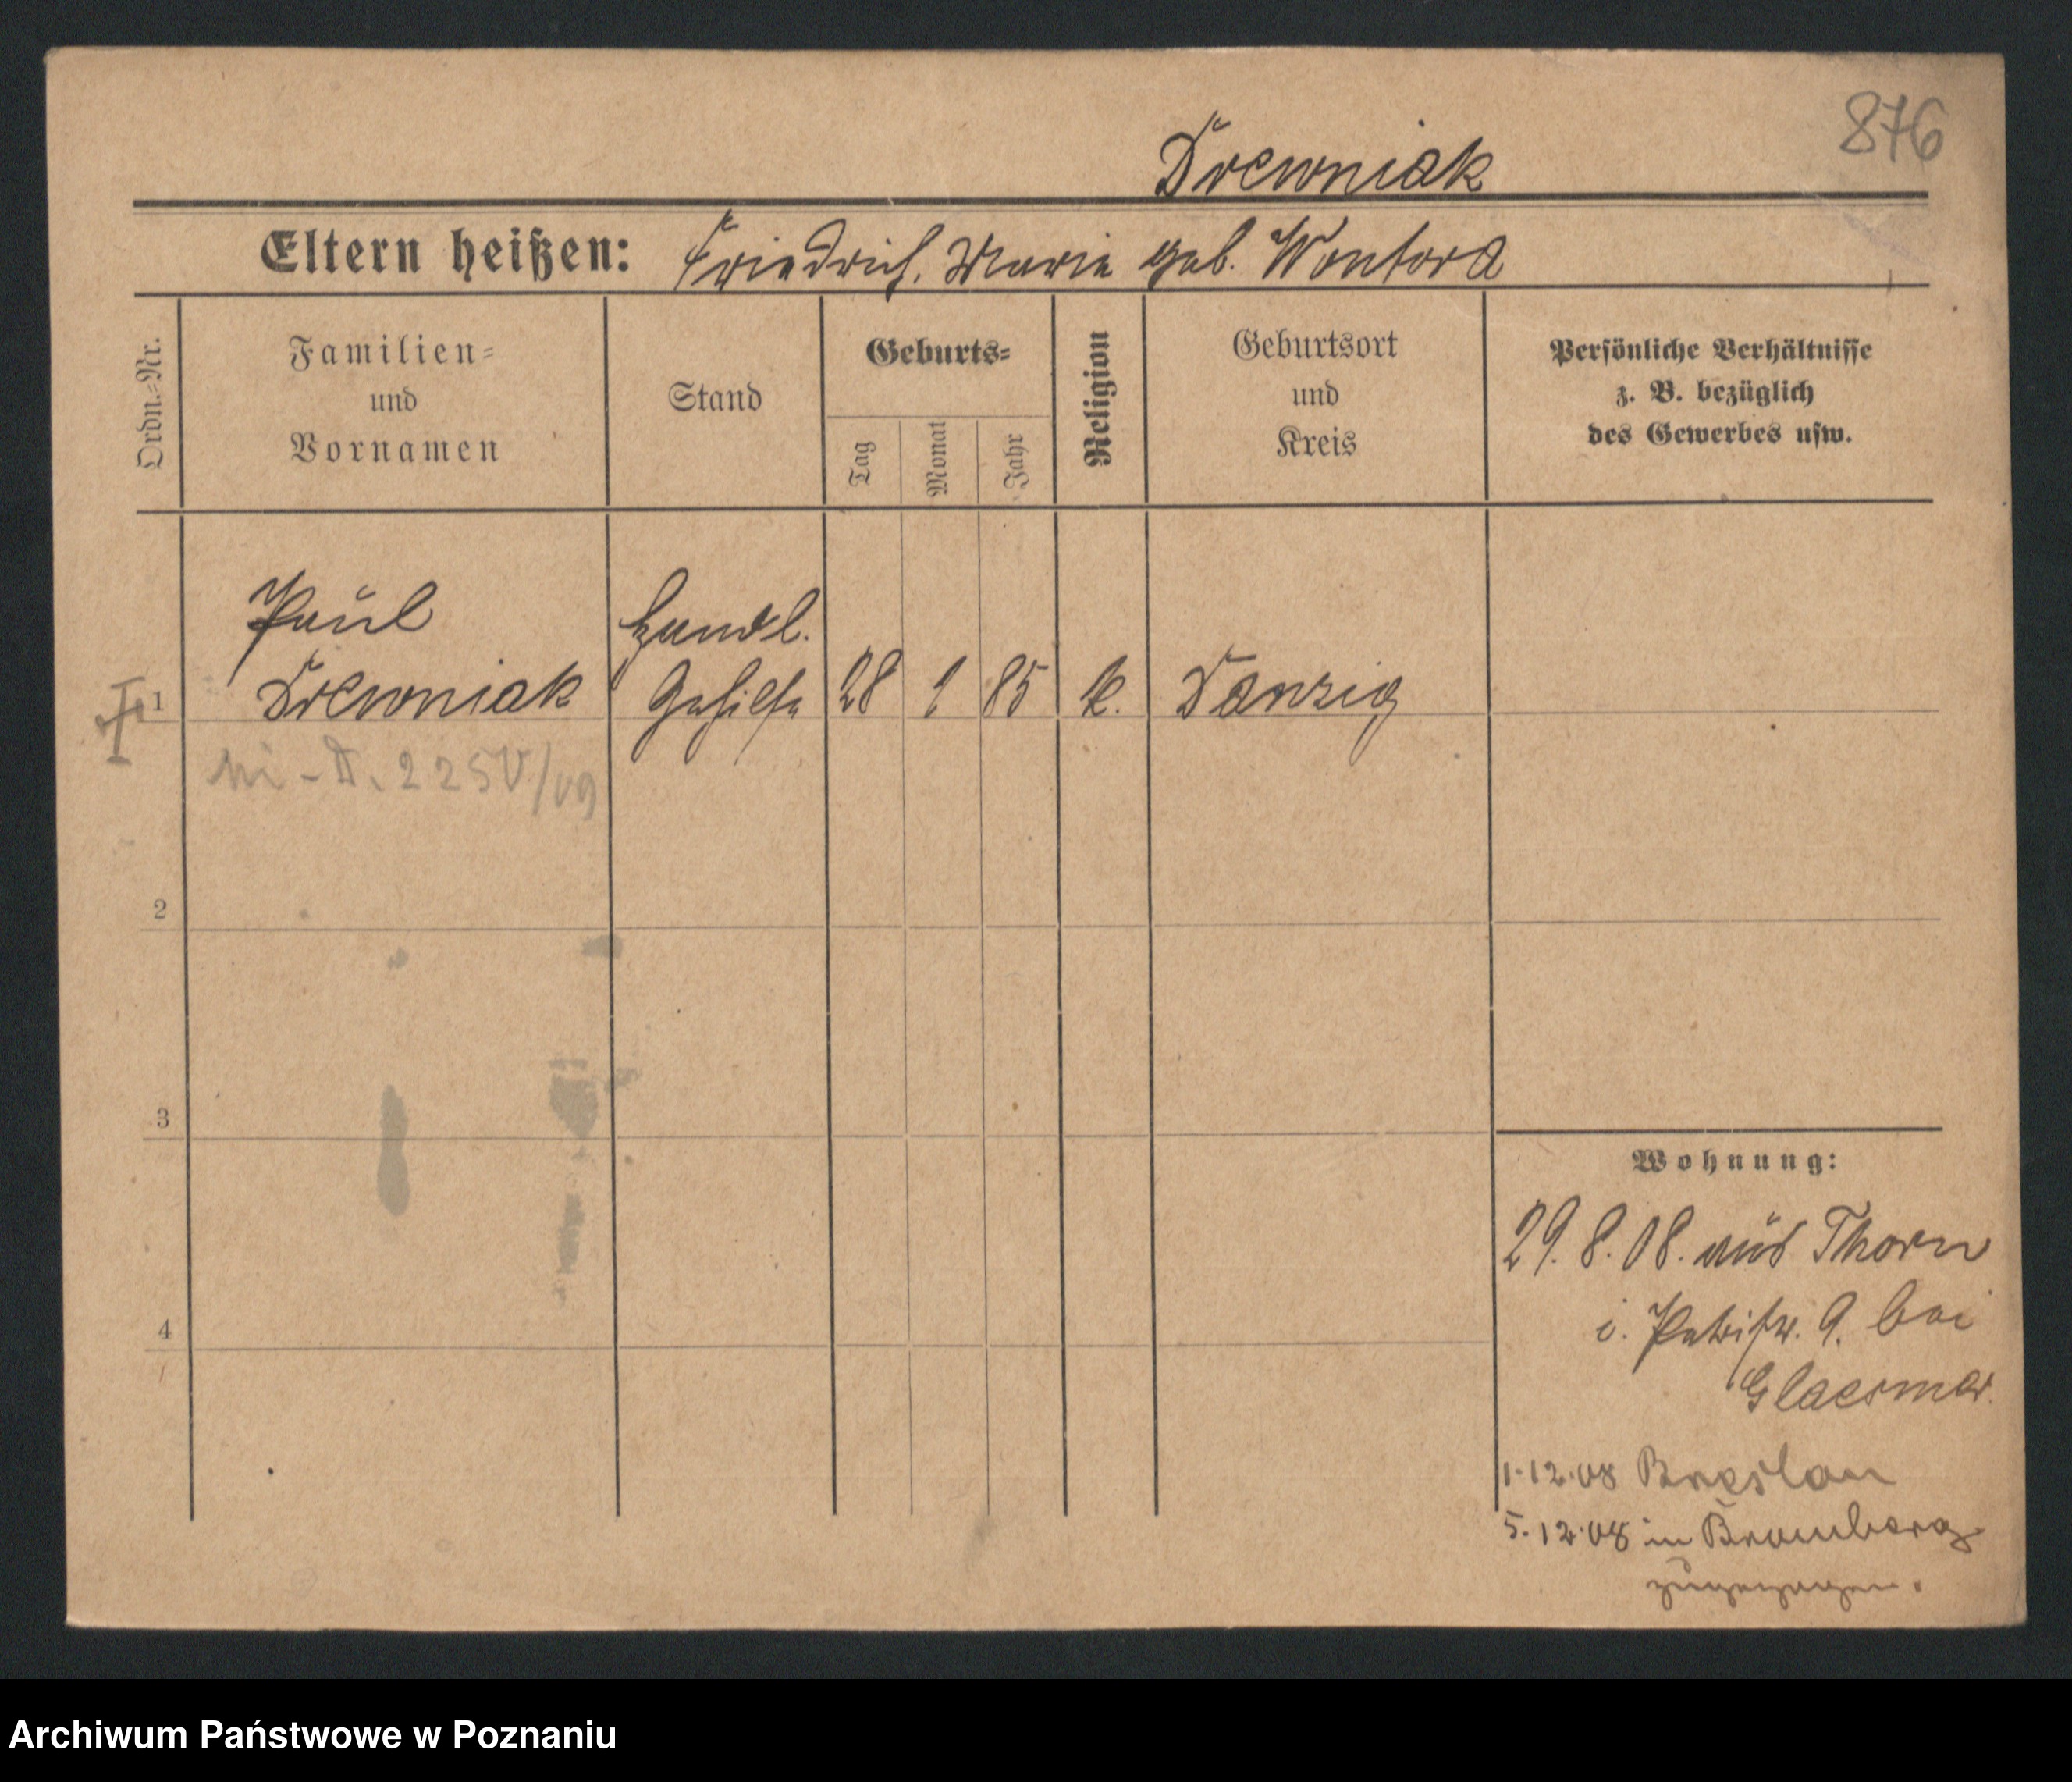 876
Drewniak
Eltern heißen: Friedrich, Marie geb. Wontora
Ordn.-Nr.
Familien-
und
Vornamen
Stand
Geburts-
Tag
Monat
Jahr
Religion
Geburtsort
und
Kreis
Persönliche Verhältnisse
z. B. bezüglich
des Gewerbes usw.
Paul Handl.
1 Drewniak Gehilfe 28 1 85 k. Danzig
D. 225 V/09
2
3
4
Wohnung:
29. 8. 08. aus Thorn
i. Petristr. 9. bei
Glaesmer.
1.12.08 Breslau
5.12.08 in Bromberg
zugezogen.
Archiwum Państwowe w Poznaniu